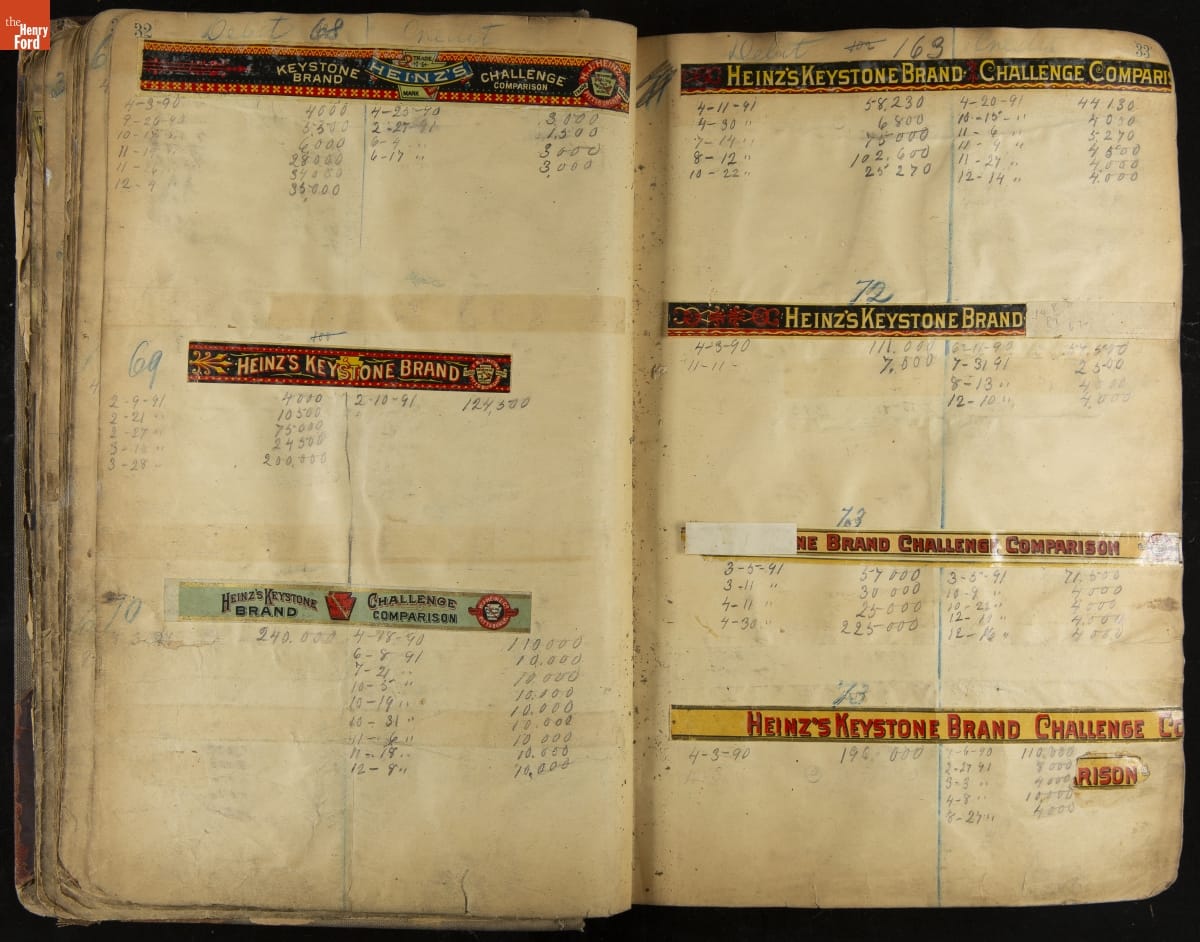 the
Henry
Ford
32 Debit 68 Credit
KEYSTONE BRAND
TRADE
HEINZ'S
MARK
CHALLENGE COMPARISON
H.J. HEINZ CO.
PITTSBURGH
4-3-90 4000 4-25-90 3,000
9-26-90 5,500 2-27-91 1,500
10-18 " 6,000 6-4 " 3,000
28000 6-17 " 3,000
34000
12-9 " 35000
69
HEINZ'S KEYSTONE BRAND
2-9-91 4000 2-10-91 124,500
2-21 " 10500
2-27 " 75000
24500
3-28 " 200,000
70
HEINZ'S KEYSTONE BRAND
CHALLENGE COMPARISON
240.000 4-18-90 110000
6-8 91 10,000
7-21 " 10,000
10-5 " 10,000
10-19 " 10,000
10-31 " 10,000
11-6 " 10,000
11-18 " 10,000
12-8 " 10,000
Debit 163 Credit 33
HEINZ'S KEYSTONE BRAND CHALLENGE COMPARIS
4-11-91 58,230 4-20-91 44130
4-30 " 6800 10-15 " 4030
7-14 " 75000 11-6 " 5270
8-12 " 102,600 11-9 " 4500
10-22 " 25270 11-27 " 4000
12-14 " 4.000
72
HEINZ'S KEYSTONE BRAND
4-3-90 111,000 6-11-90
11-11- 7,500 7-31 91 2500
8-13 " 4000
12-10 " 4,000
73
NE BRAND CHALLENGE COMPARISON
3-5-91 57000 3-5-91 71,500
3-11 " 30000 10-8 " 4.000
4-11 " 25000 10-21 " 4000
4-30 " 225000 12-10 " 4.000
12-16 " 4000
73
HEINZ'S KEYSTONE BRAND CHALLENGE CO
4-3-90 196.000 110,000
2-27 91 8000
3-3 " 4000
4-8 " 10,000
8-27 " 4000
RISON